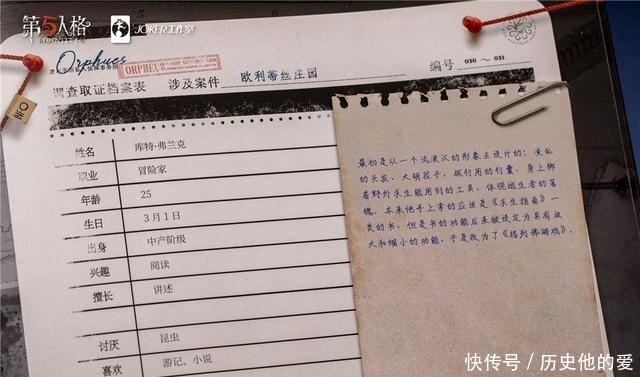 第五人格
JOKER工作室
Orpheus
ORPHEUS
调查取证档案表 涉及案件 欧利蒂丝庄园 编号 030～031
姓名 库特·弗兰克
职业 冒险家
年龄 25
生日 3月1日
出身 中产阶级
兴趣 阅读
擅长 讲述
讨厌 昆虫
喜欢 游记、小说
最初是以一个流浪汉的形象去设计的：凌乱
的头发，大胡茬子，旅行用的行囊，身上绑
着野外求生能用到的工具，体现逃生者的落
魄。本来他手上拿的应该是《求生指南》一
类的书，但是书的功能后来被设定为具有放
大和缩小的功能，于是改为了《格列佛游戏》。
快传号／历史他的爱